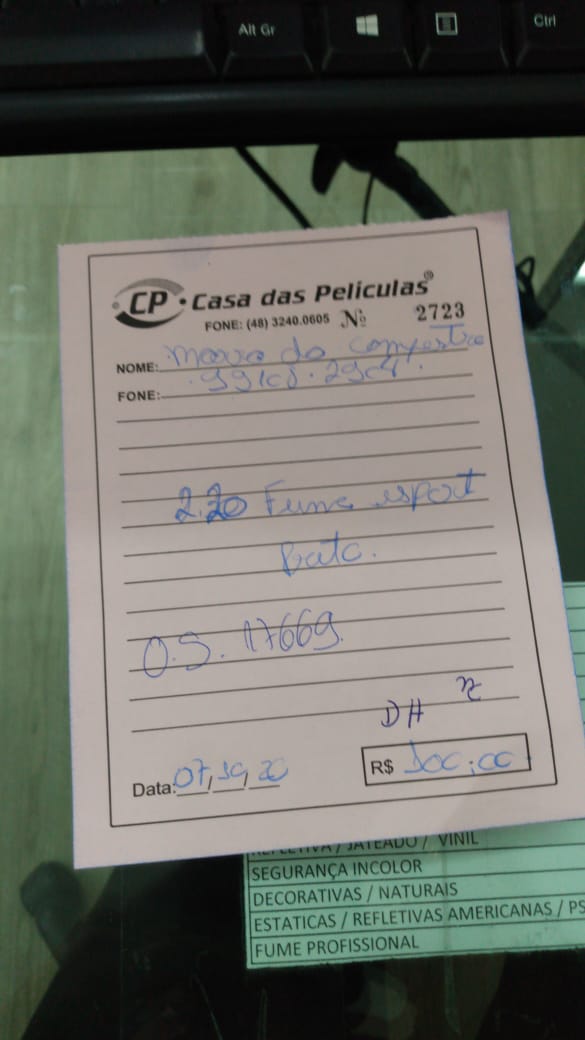 Alt Gr
Ctrl
CP Casa das Películas®
FONE: (48) 3240.0605 Nº 2723
NOME: do
FONE:
2.20 Fume esport
O.S. 17669.
DH
Data: 07,10,20 R$ 100,00
REFLETIVA / JATEADO / VINIL
SEGURANÇA INCOLOR
DECORATIVAS / NATURAIS
ESTATICAS / REFLETIVAS AMERICANAS / PS
FUME PROFISSIONAL